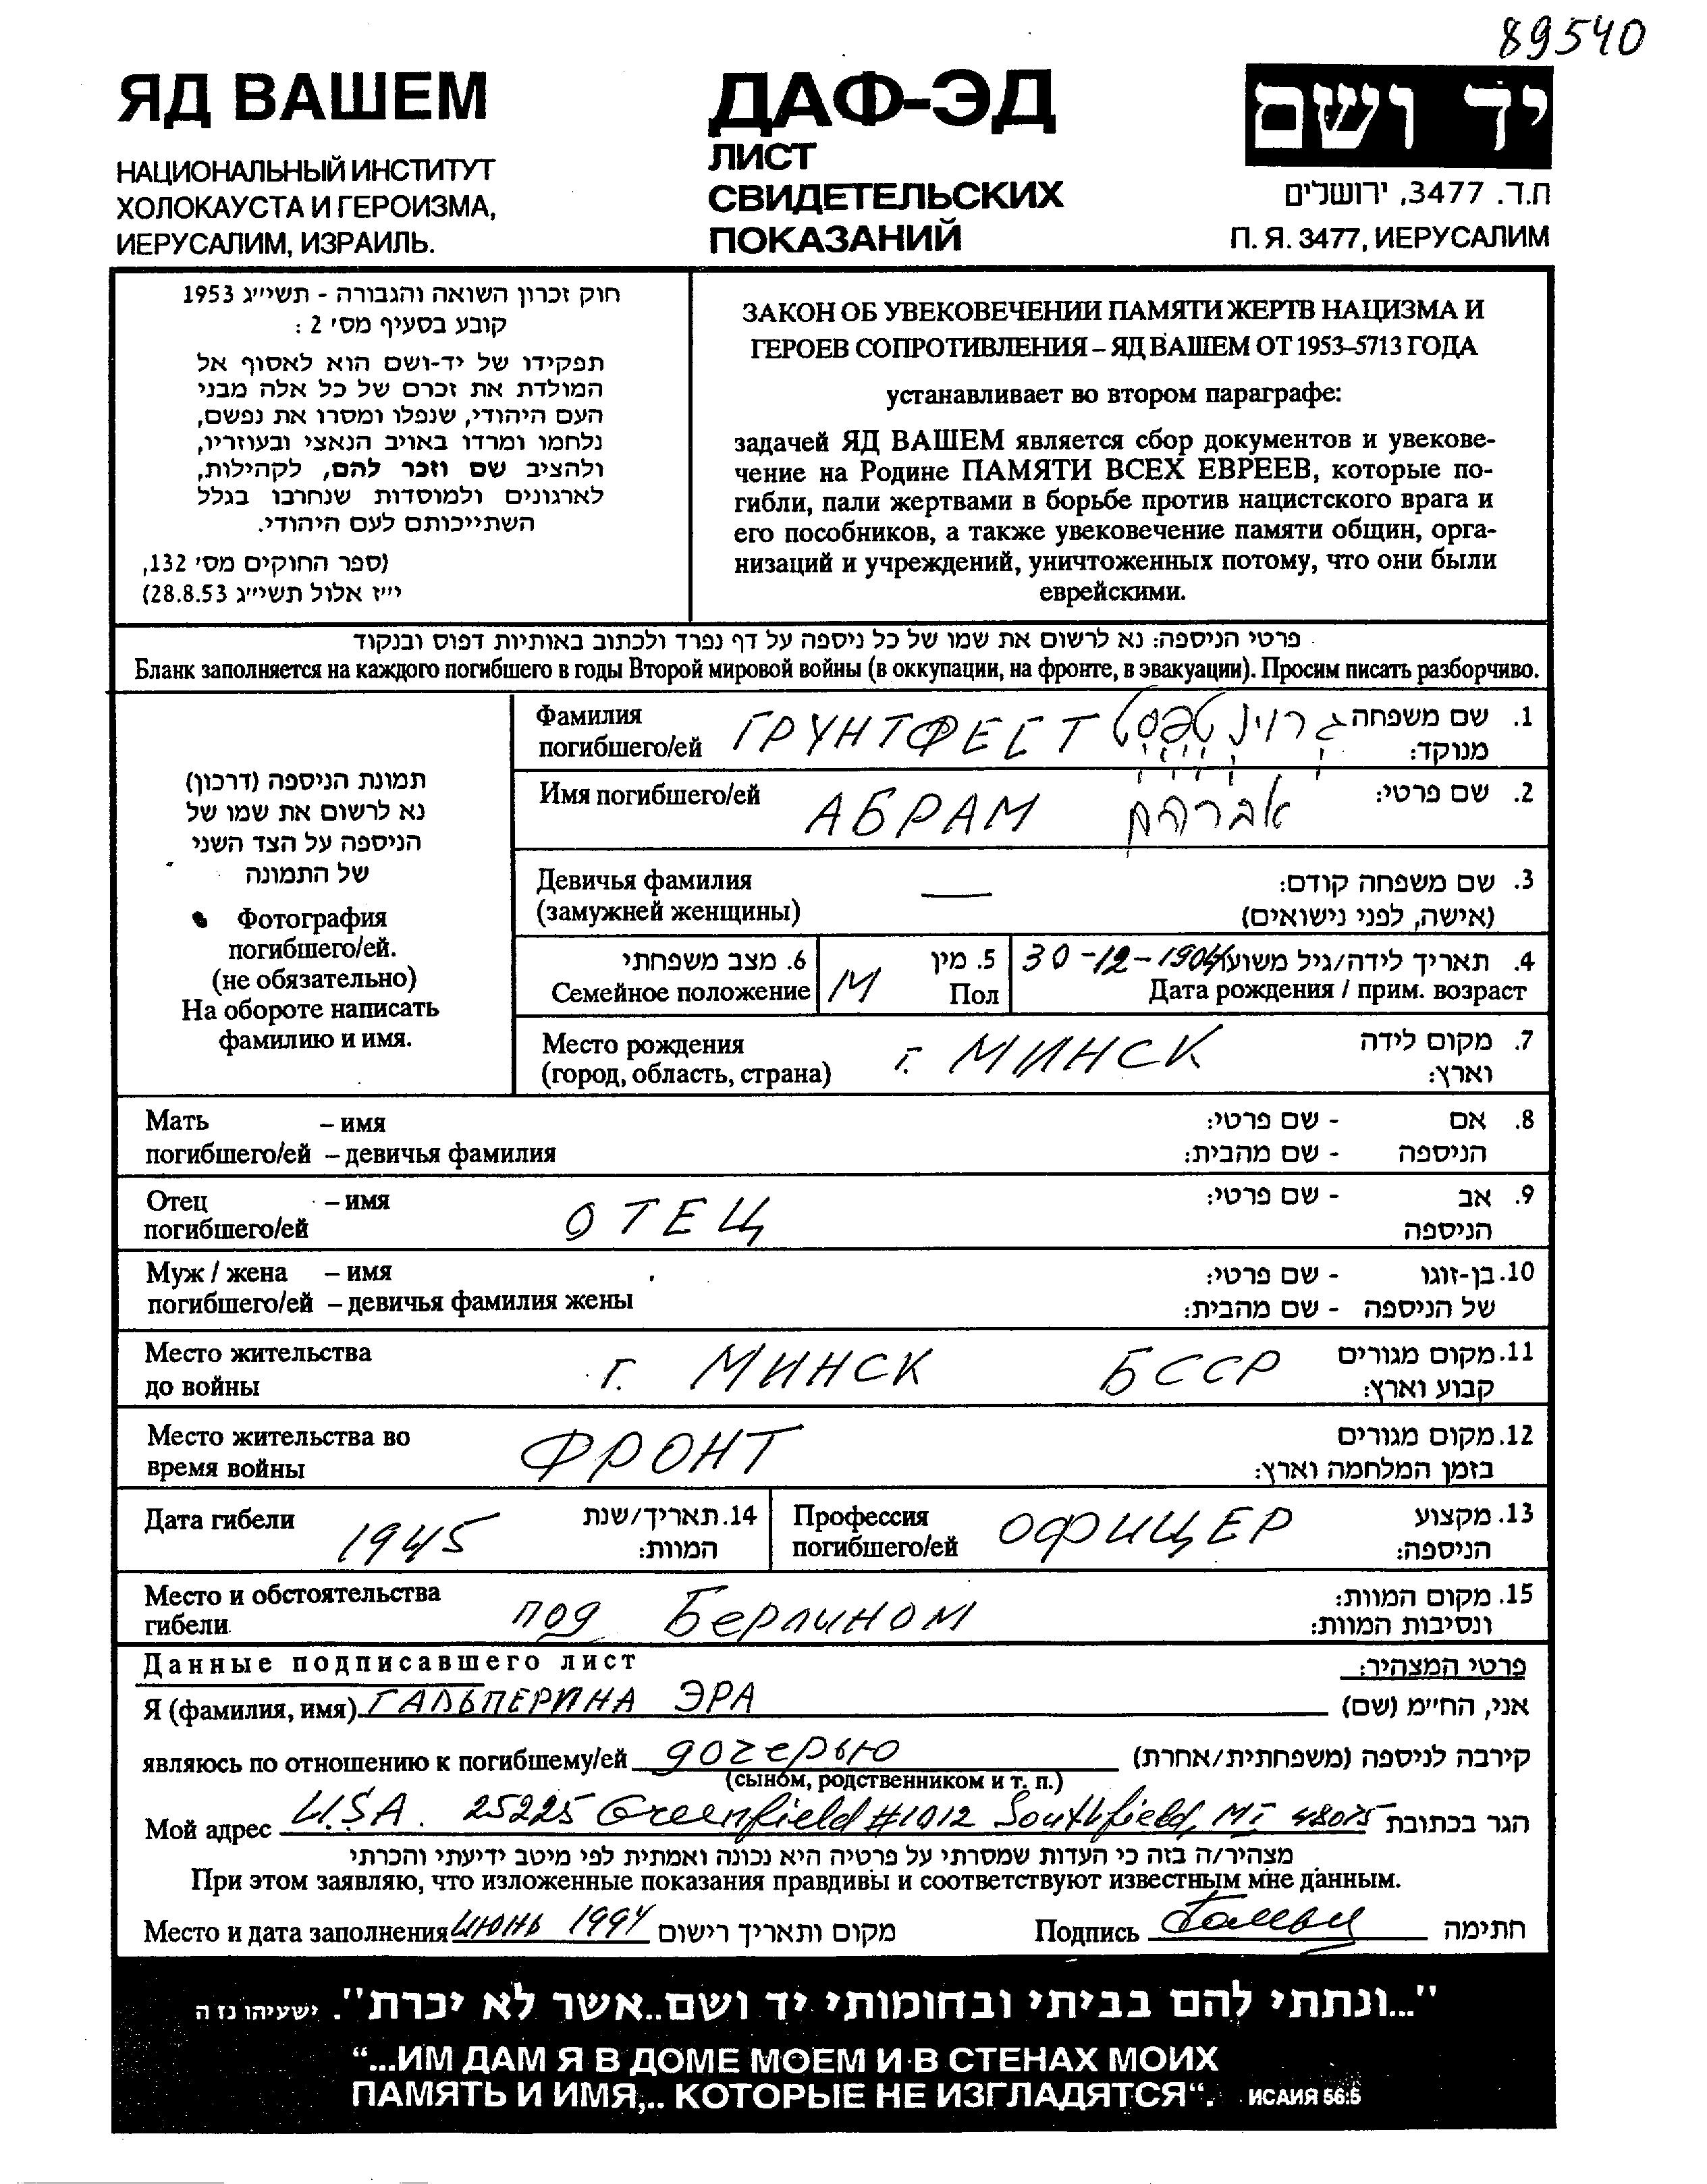 89540
ЯД ВАШЕМ
НАЦИОНАЛЬНЫЙ ИНСТИТУТ
ХОЛОКАУСТА И ГЕРОИЗМА,
ИЕРУСАЛИМ, ИЗРАИЛЬ.
ДАФ-ЭД
ЛИСТ
СВИДЕТЕЛЬСКИХ
ПОКАЗАНИЙ
יד ושם
ת.ד. 3477, ירושלים
П. Я. 3477, ИЕРУСАЛИМ
חוק זכרון השואה והגבורה - תשי״ג 1953
קובע בסעיף מס׳ 2 :
תפקידו של יד-ושם הוא לאסוף אל
המולדת את זכרם של כל אלה מבני
העם היהודי, שנפלו ומסרו את נפשם,
נלחמו ומרדו באויב הנאצי ובעוזריו,
ולהציב שם וזכר להם, לקהילות,
לארגונים ולמוסדות שנחרבו בגלל
השתייכותם לעם היהודי.
(ספר החוקים מס׳ 132,
י״ז אלול תשי״ג 28.8.53)
ЗАКОН ОБ УВЕКОВЕЧЕНИИ ПАМЯТИ ЖЕРТВ НАЦИЗМА И
ГЕРОЕВ СОПРОТИВЛЕНИЯ – ЯД ВАШЕМ ОТ 1953–5713 ГОДА
устанавливает во втором параграфе:
задачей ЯД ВАШЕМ является сбор документов и увекове-
чение на Родине ПАМЯТИ ВСЕХ ЕВРЕЕВ, которые по-
гибли, пали жертвами в борьбе против нацистского врага и
его пособников, а также увековечение памяти общин, орга-
низаций и учреждений, уничтоженных потому, что они были
еврейскими.
פרטי הניספה: נא לרשום את שמו של כל ניספה על דף נפרד ולכתוב באותיות דפוס ובנקוד
Бланк заполняется на каждого погибшего в годы Второй мировой войны (в оккупации, на фронте, в эвакуации). Просим писать разборчиво.
תמונת הניספה (דרכון)
נא לרשום את שמו של
הניספה על הצד השני
של התמונה
Фотография
погибшего/ей.
(не обязательно)
На обороте написать
фамилию и имя.
Фамилия ГРУНТФЕСТ גרוינטפסט 1. שם משפחה
погибшего/ей מנוקד:
Имя погибшего/ей АБРАМ אברהם 2. שם פרטי:
Девичья фамилия — 3. שם משפחה קודם:
(замужней женщины) (אישה, לפני נישואים)
6. מצב משפחתי 5. מין 30-12-1904 4. תאריך לידה/גיל משוער
Семейное положение М Пол Дата рождения / прим. возраст
Место рождения г. МИНСК 7. מקום לידה
(город, область, страна) וארץ:
Мать – имя 8. אם - שם פרטי:
погибшего/ей – девичья фамилия הניספה - שם מהבית:
Отец – имя ОТЕЦ 9. אב - שם פרטי:
погибшего/ей הניספה
Муж / жена – имя 10. בן-זוגו - שם פרטי:
погибшего/ей – девичья фамилия жены של הניספה - שם מהבית:
Место жительства г. МИНСК БССР 11. מקום מגורים
до войны קבוע וארץ:
Место жительства во ФРОНТ 12. מקום מגורים
время войны בזמן המלחמה וארץ:
Дата гибели 1945 14. תאריך/שנת המוות:
Профессия ОФИЦЕР 13. מקצוע
погибшего/ей הניספה:
Место и обстоятельства под Берлином 15. מקום המוות:
гибели ונסיבות המוות:
Данные подписавшего лист פרטי המצהיר:
Я (фамилия, имя) ГАЛЬПЕРИНА ЭРА אני, הח״מ (שם)
являюсь по отношению к погибшему/ей дочерью קירבה לניספה (משפחתית/אחרת)
(сыном, родственником и т. п.)
Мой адрес U.S.A. 25225 Greenfield #1012 Southfield, MI 48075 הגר בכתובת
מצהיר/ה בזה כי העדות שמסרתי על פרטיה היא נכונה ואמתית לפי מיטב ידיעתי והכרתי
При этом заявляю, что изложенные показания правдивы и соответствуют известным мне данным.
Место и дата заполнения июнь 1994 מקום ותאריך רישום Подпись חתימה
"...ונתתי להם בביתי ובחומותי יד ושם..אשר לא יכרת". ישעיהו נז ה
“...ИМ ДАМ Я В ДОМЕ МОЕМ И В СТЕНАХ МОИХ
ПАМЯТЬ И ИМЯ,.. КОТОРЫЕ НЕ ИЗГЛАДЯТСЯ“. ИСАИЯ 56:5